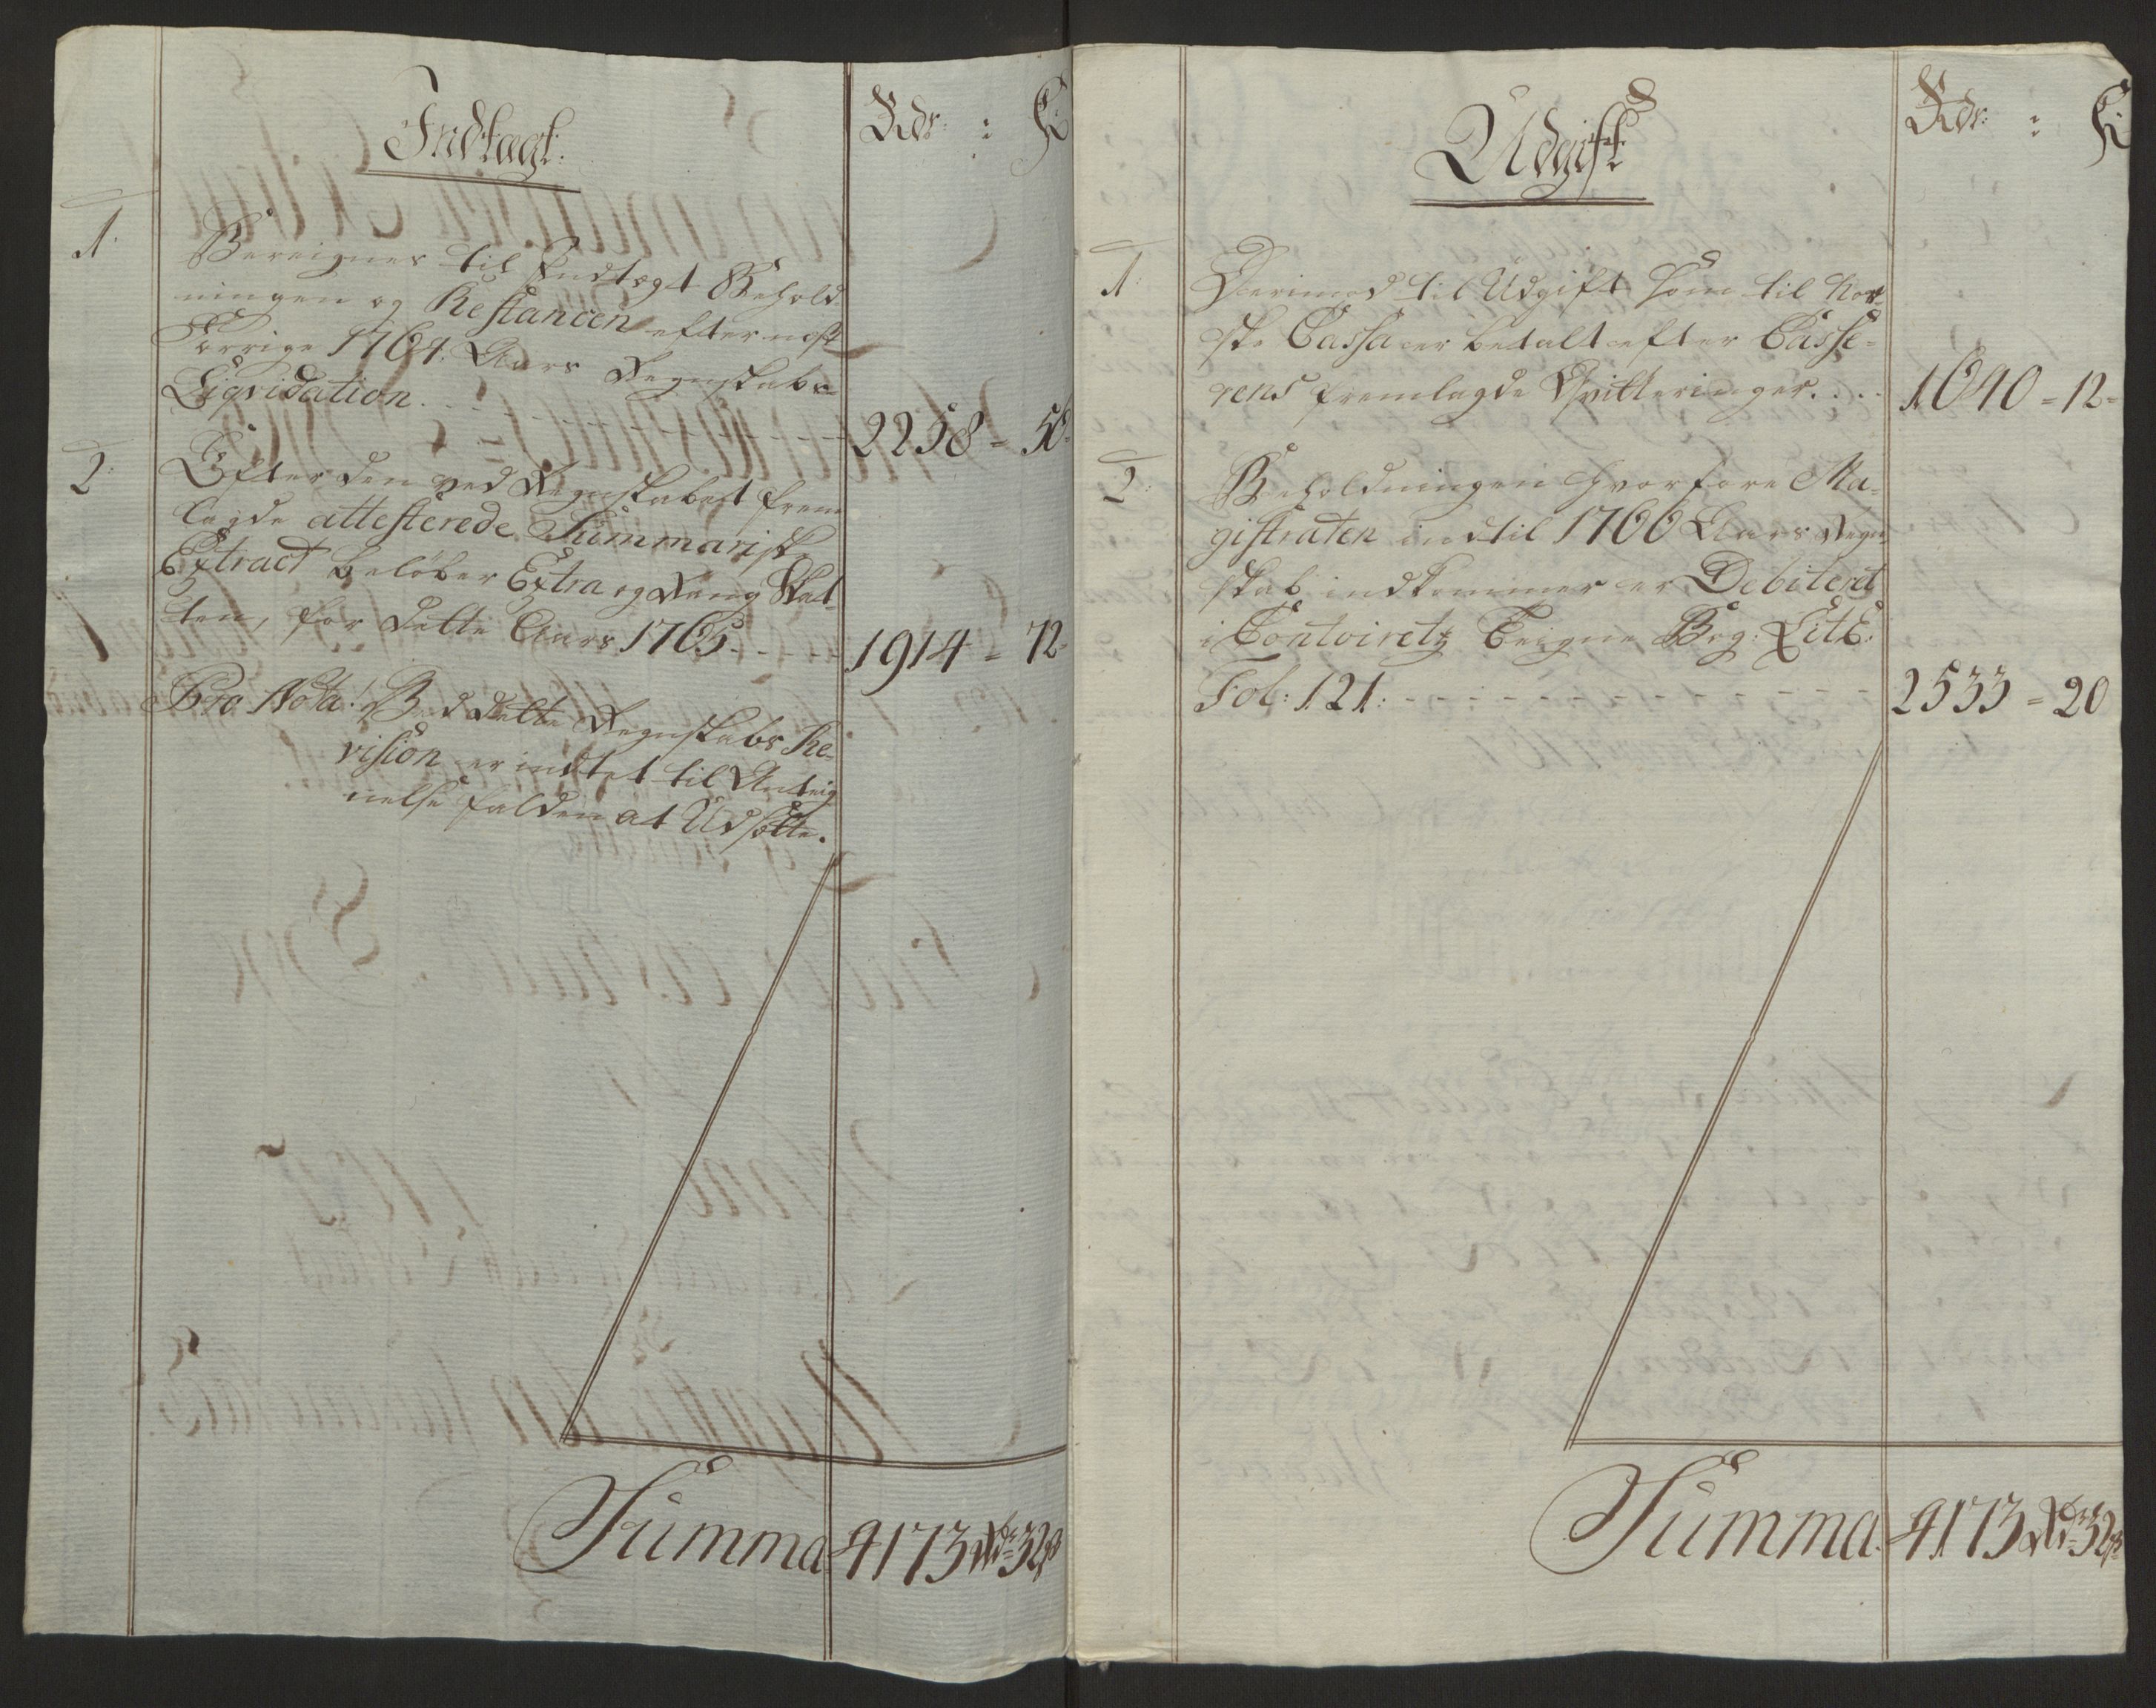 Indtægt.
Rdr: : ß
1.
Bereignes til Indtægt Behold
ningen og Restancen efter næst
Forrige 1764. Aars Regnskabs
Liqvidation.
2258 = 56.
2.
Efter den ved Regnskabet frem
lagde attesterede Summariske
Extract beløber Extra og Rang Skat
ten, for dette Aars 1765
1914 = 72.
Pro Nota! Ved dette Regnskabs Re-
vision er intet til Anteig
nelse falden at Udsætte.
Summa. 4173 Rdr 32 ß
Udgift
Rdr: : ß
1.
Derimod til Udgift Som til Nor-
ske Cassa er betalt efter Casse-
rens fremlagde Qvitteringer....
1640 = 12-
2.
Beholdningen hvorfore Ma-
gistraten indtil 1766 Aars Regn
skab indkommer er Debiteret
i Contoiretz Teigne Bog: Lit E:
Fol: 121:
2533 = 20
Summa. 4173 Rdr 32 ß